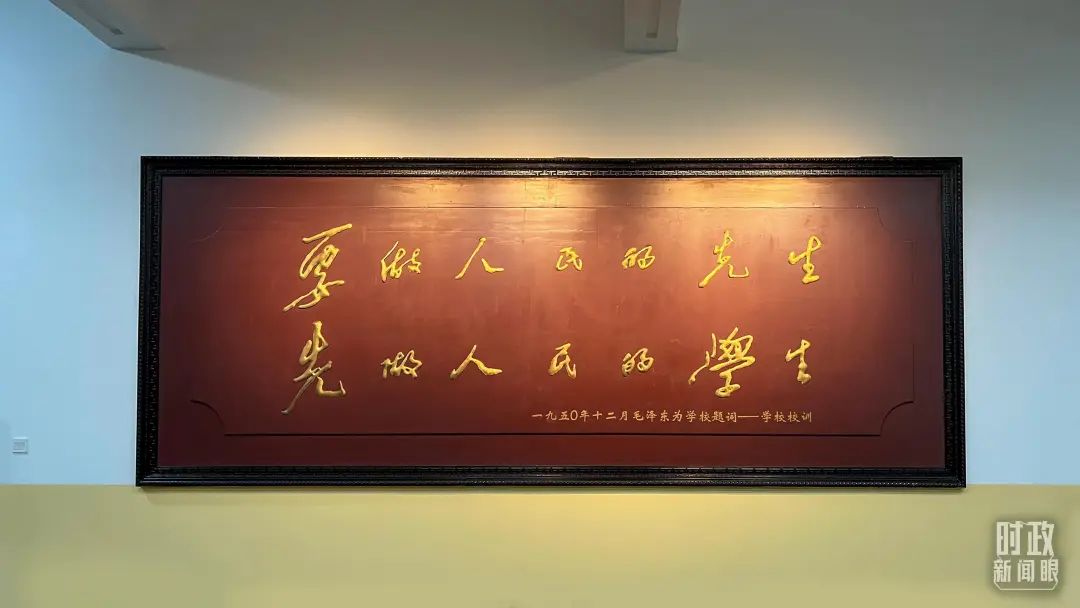 要做人民的先生
先做人民的學生
一九五〇年十二月毛泽东为学校题词——学校校训
时政
新闻眼